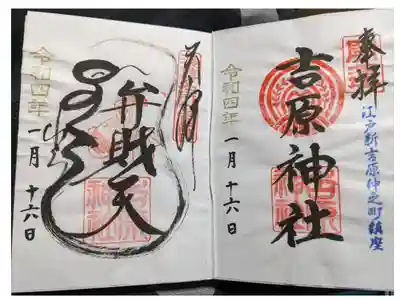 奉拝
江戸新吉原仲之町鎮座
吉原神社
吉原神社
令和四年
一月
十六日
弁財天
吉原神社
令和四年
一月
十六日